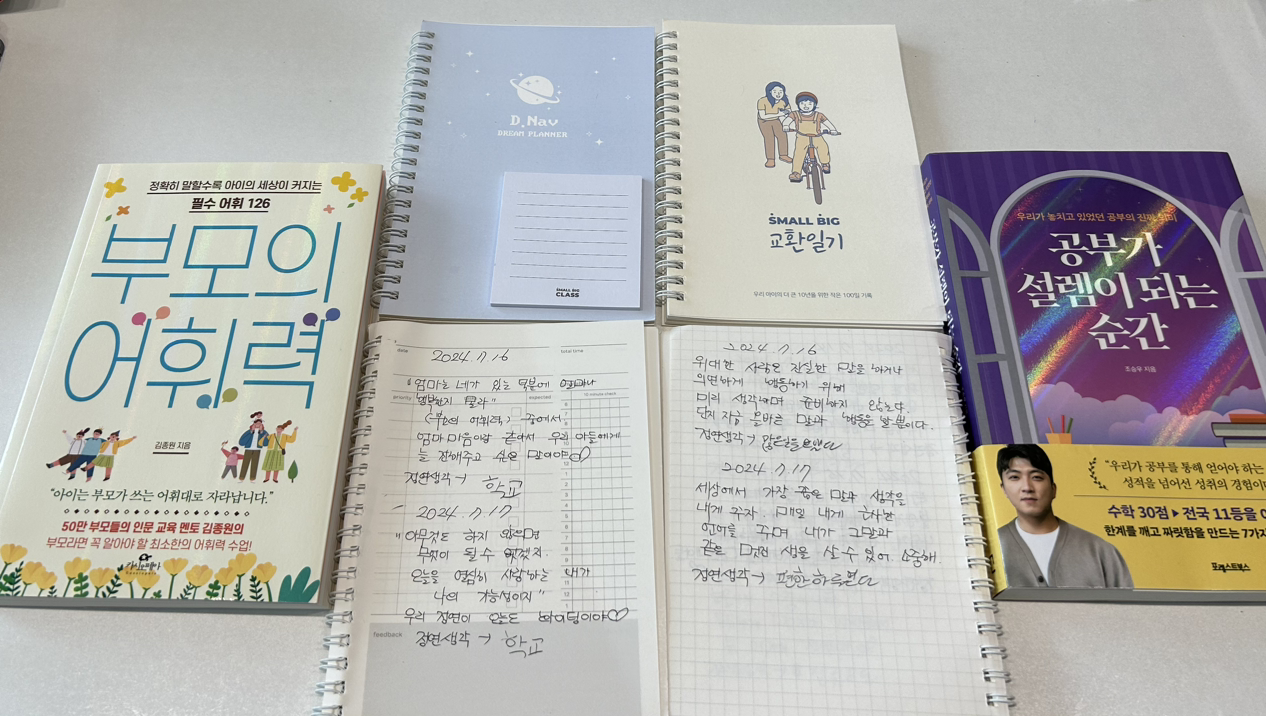 정확히 말할수록 아이의 세상이 커지는
필수 어휘 126
부모의
어휘력
김종원 지음
“아이는 부모가 쓰는 어휘대로 자라납니다.”
50만 부모들의 인문 교육 멘토 김종원의
부모라면 꼭 알아야 할 최소한의 어휘력 수업!
D.Nav
DREAM PLANNER
SMALL BIG
CLASS
SMALL BIG
교환일기
우리 아이의 더 큰 10년을 위한 작은 100일 기록
우리가 놓치고 있었던 공부의 진짜 의미
공부가
설렘이 되는
순간
조승우 지음
“우리가 공부를 통해 얻어야 하는
성적을 넘어선 성취의 경험이
수학 30점 ▸ 전국 11등을
한계를 깨고 짜릿함을 만드는 7가지
포레스트북스
date
2024. 7. 16
total time
"엄마는 네가 있는 덕분에 얼마나
priority
expected
10 minute check
행복한지 몰라"
(부모의 어휘력) 중에서
엄마 마음이랑 같아서 우리 아들에게
늘 전해주고 싶은 말이야♡
정연생각 → 학교
2024. 7. 17
"아무것도 하지 않으면
무엇이 될 수 없겠지.
오늘을 열심히 사랑하는 내가
나의 가능성이지"
우리 정연이 오늘도 화이팅이야♡
feedback
정연생각 → 학교
2024. 7. 16
위대한 사람은 진실한 말을 하거나
의연하게 행동하기 위해
미리 생각하며 준비하지 않는다.
단지 지금 올바른 말과 행동을 할 뿐이다.
정연생각 →
2024. 7. 17
세상에서 가장 좋은 말과 생각을
내게 주자. 매일 내게 근사한
언어를 주며 내가 그 말과
같은 멋진 생을 살 수 있어. 소중해.
정연생각 → 편한하루였다